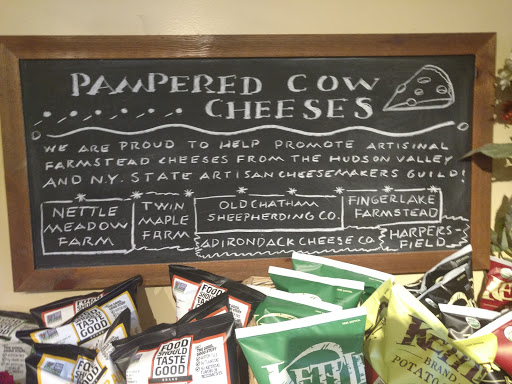 PAMPERED COW
CHEESES
WE ARE PROUD TO HELP PROMOTE ARTISINAL
FARMSTEAD CHEESES FROM THE HUDSON VALLEY
AND N.Y. STATE ARTISAN CHEESEMAKERS GUILD!
NETTLE
MEADOW
FARM
TWIN
MAPLE
FARM
OLD CHATHAM
SHEEPHERDING CO.
ADIRONDACK CHEESE CO.
FINGERLAKE
FARMSTEAD
HARPERS-
FIELD
FOOD
SHOULD
TASTE
GOOD
FOOD
SHOULD
TASTE
GOOD
FOOD
SHOULD
TASTE
GOOD
KETTLE
BRAND
POTATO